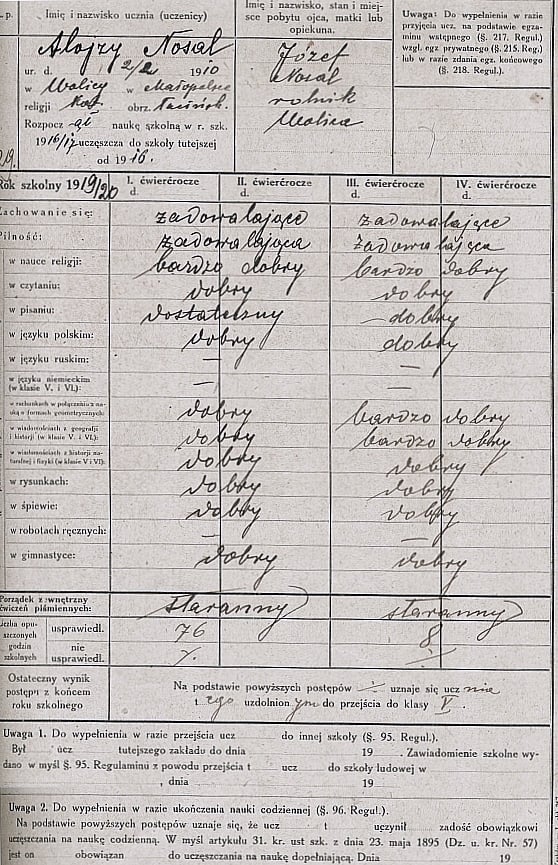 .p.
Imię i nazwisko ucznia (uczenicy)
Alojzy Nosal
ur. d. 2/2 1910
w Wolicy w Małopolsce
religji kat. obrz. łacińsk.
Rozpocz ął naukę szkolną w r. szk.
1916/17 uczęszcza do szkoły tutejszej
od 1916.
Imię i nazwisko, stan i miej-
sce pobytu ojca, matki lub
opiekuna.
Józef
Nosal
rolnik
Wolica
Uwaga: Do wypełnienia w razie
przyjęcia ucz. na podstawie egza-
minu wstępnego (§. 217. Regul.)
wzgl. egz prywatnego (§. 215. Reg.)
lub w razie zdania egz. końcowego
(§. 218. Regul.).
Rok szkolny 1919/20 I. ćwierćrocze d. II. ćwierćrocze d. III. ćwierćrocze d. IV. ćwierćrocze d.
Zachowanie się: zadowalające zadowalające
Pilność: zadowalająca zadowalająca
w nauce religji: bardzo dobry bardzo dobry
w czytaniu: dobry dobry
w pisaniu: dostateczny — dobry
w języku polskim: dobry dobry
w języku ruskim: — —
w języku niemieckim
(w klasie V. i VI.): — —
w rachunkach w połączeniu z na-
uką o formach geometrycznych: dobry bardzo dobry
w wiadomościach z geografji
i historji (w klasie V. i VI.): dobry bardzo dobry
w wiadomościach z historji na-
turalnej i fizyki (w klasie V i VI): dobry dobry
w rysunkach: dobry dobry
w śpiewie: dobry dobry
w robotach ręcznych: — —
w gimnastyce: dobry dobry
Porządek zewnętrzny
ćwiczeń piśmiennych: staranny staranny
Liczba opu-
szczonych
godzin
szkolnych
usprawiedl. 76 8
nie
usprawiedl.
Ostateczny wynik
postępu z końcem
roku szkolnego
Na podstawie powyższych postępów uznaje się ucznia
tego uzdolnionym do przejścia do klasy V.
Uwaga 1. Do wypełnienia w razie przejścia ucz do innej szkoły (§. 95. Regul.).
Był ucz tutejszego zakładu do dnia 19 . Zawiadomienie szkolne wy-
dano w myśl §. 95. Regulaminu z powodu przejścia t ucz do szkoły ludowej w
, dnia 19
Uwaga 2. Do wypełnienia w razie ukończenia nauki codziennej (§. 96. Regul.).
Na podstawie powyższych postępów uznaje się, że ucz t uczynił zadość obowiązkowi
uczęszczania na naukę codzienną. W myśl artykułu 31. kr. ust szk. z dnia 23. maja 1895 (Dz. u. kr. Nr. 57)
jest on obowiązan do uczęszczania na naukę dopełniającą. Dnia 19